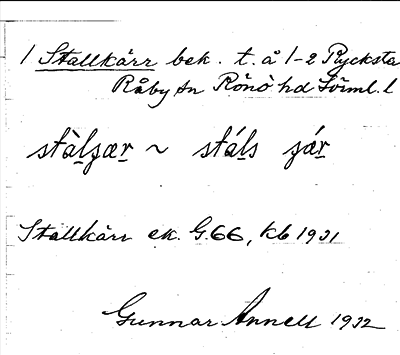 1 Stallkärr bek. t. å 1-2 Rycksta
Råby sn Rönö hd Sörml. l
stàlɟær ~ stáls ɟár
Stallkärr ek. G.66, kb 1931
Gunnar Annell 1932